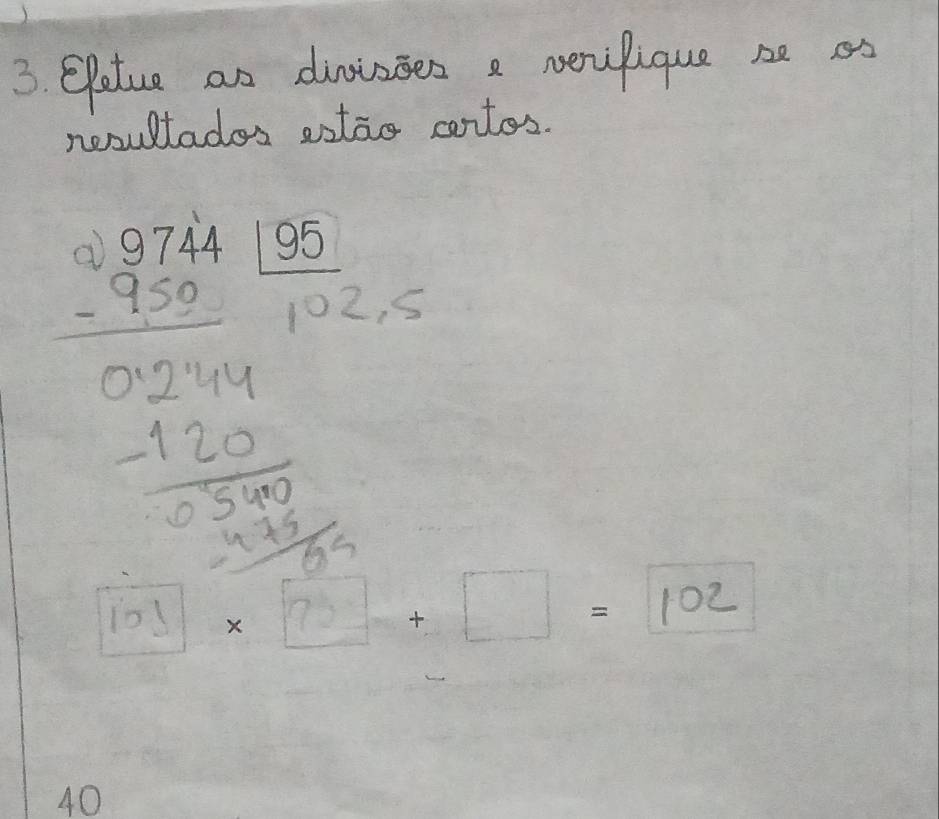 3. Efetue as divisões e verifique se os
resultados estão certos.
a) 9744 95
- 950 102,5
0244
-120
0540
-475
65
x + = 102
40